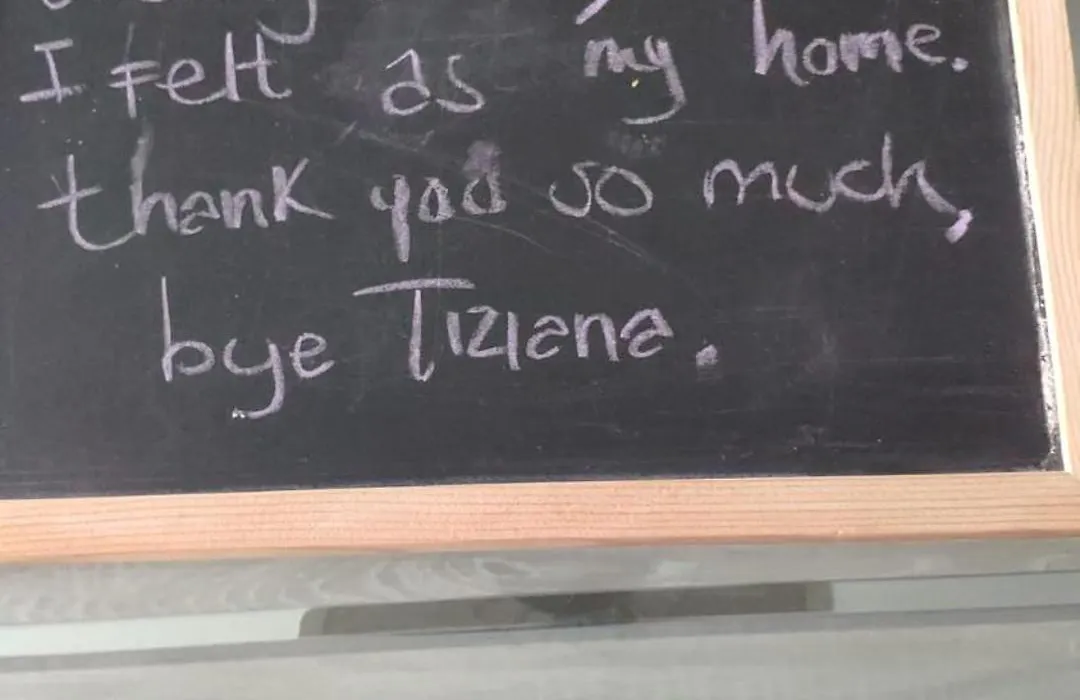 I Felt as my home.
thank you so much,
bye Tiziana.